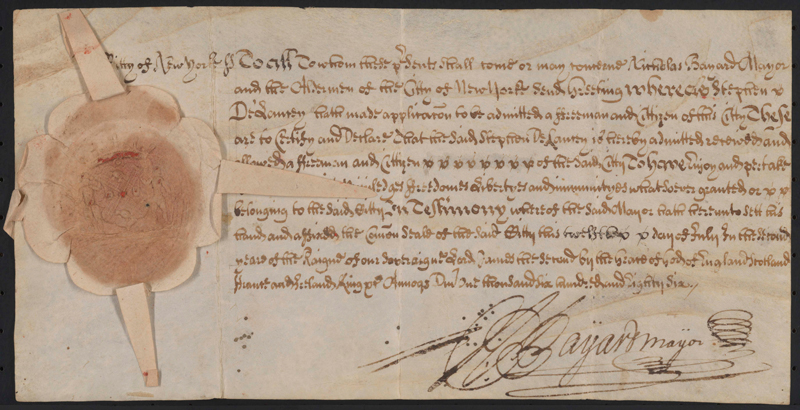 Citty of New York ss To all To whom these p'sents shall come or may concerne Nicholas Bayard Mayor
and the Aldermen of the City of New Yorke send Greeting Whereas Stephen x
DeLancey hath made application to be admitted a ffreeman and Citizen of this City These
are to Certify and Declare That the said Stephen DeLancey is hereby admitted received and
allowed a ffreeman and Cittizen x x x x x x x of the said Citty To have Enjoy and pertake
ledges freedomes Libertyes and immunityes whatsoever granted or x x
belonging to the said Citty In Testimony whereof the said Mayor hath hereunto sett his
hand and affixed the Comon Seale of the said Citty this twelveth x x day of July In the second
yeare of the Raigne of our Soveraigne Lord James the Second by the Grace of God of England Scotland
ffrance and Ireland King &c Annoq Dm One thousand six hundred and Eighty six.
N Bayard mayor